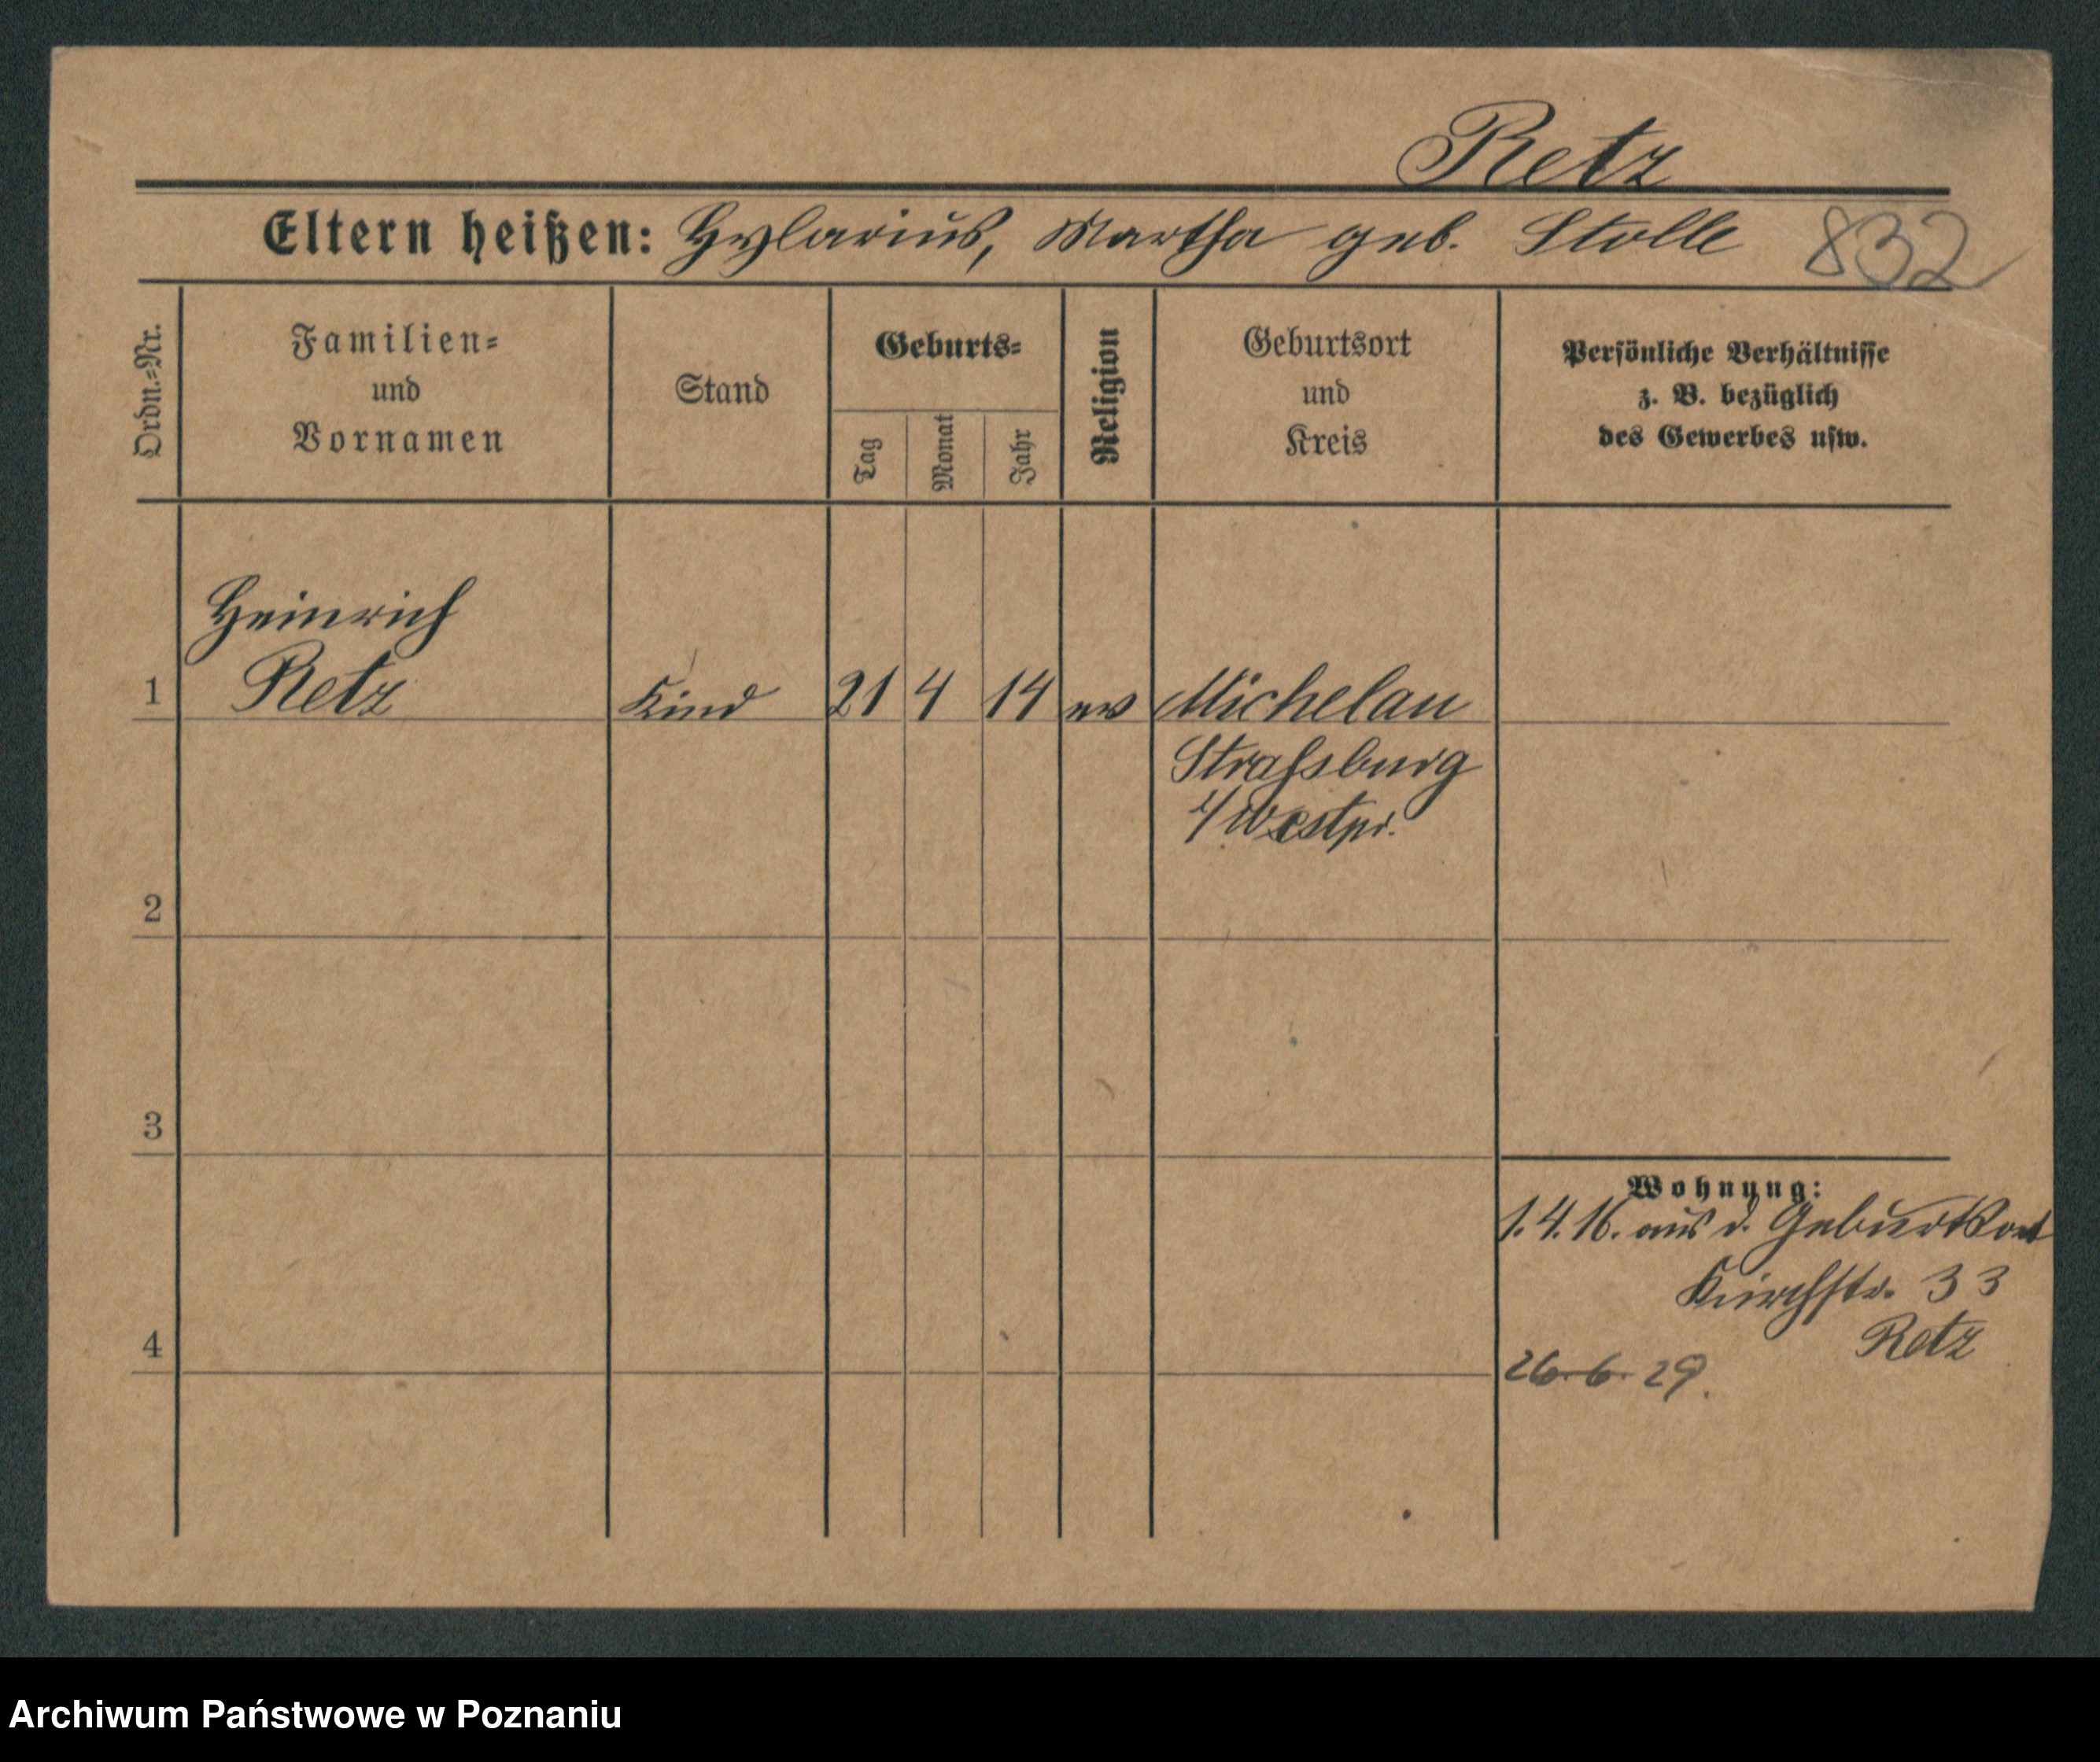 Retz
Eltern heißen: Hylarius, Martha geb. Stolle 832
Ordn.=Nr.
Familien=
und
Vornamen
Stand
Geburts=
Tag
Monat
Jahr
Religion
Geburtsort
und
Kreis
Persönliche Verhältnisse
z. B. bezüglich
des Gewerbes usw.
1
Heinrich
Retz
Kind
21
4
14
ev
Michelau
Strassburg
i/Westpr.
2
3
4
Wohnung:
1.4.16. aus d. Geburtsort
Kirchstr. 33
Retz
26.6.29.
Archiwum Państwowe w Poznaniu